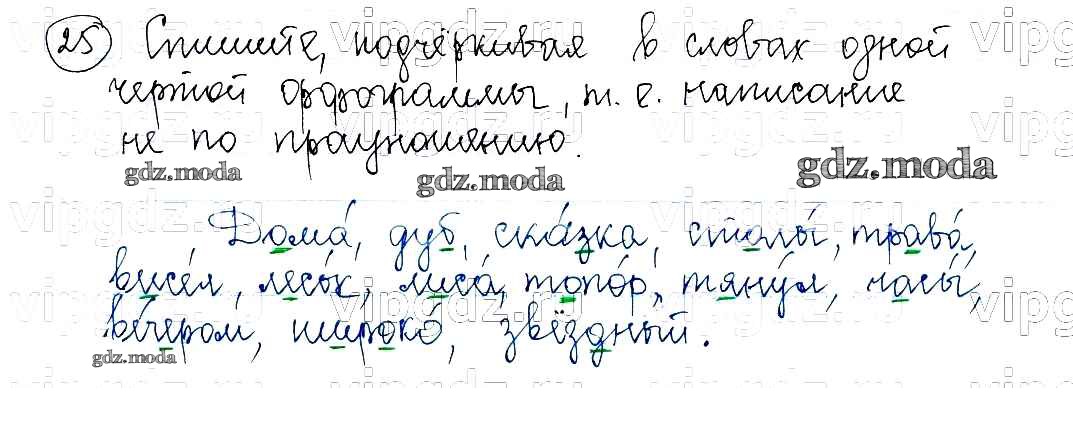 25 Спишите, подчёркивая в словах одной
чертой орфограммы, т. е. написание
не по произношению.
gdz.moda gdz.moda gdz.moda
Дома́, дуб, ска́зка, столы́, трава́,
висе́л, лесо́к, лиса́, топо́р, тяну́л, часы́,
ве́чером, широко́, звёздный.
gdz.moda